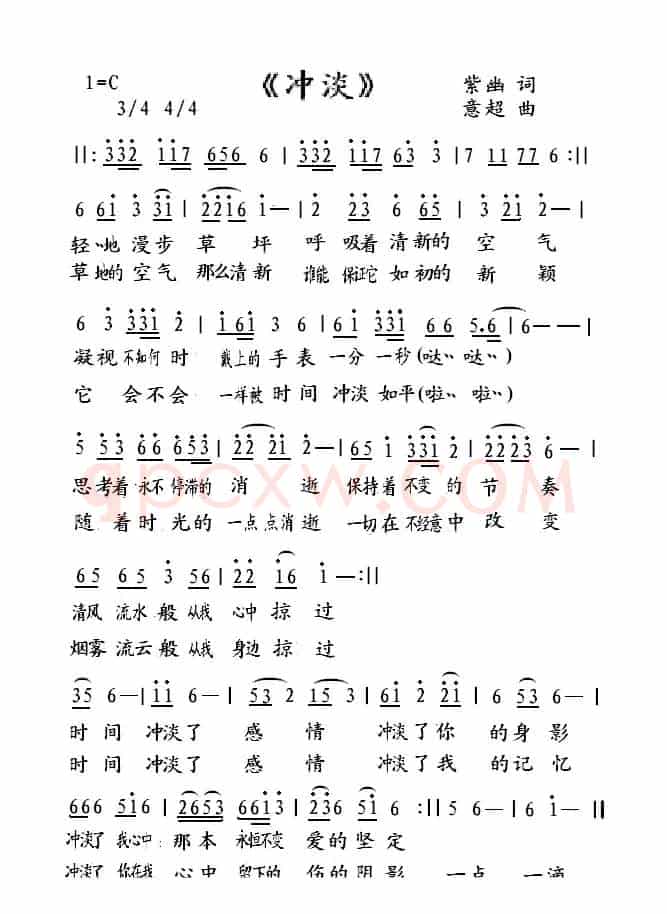 1=C 《冲淡》 紫幽 词
3/4 4/4 意超 曲
||: 332 117 656 6 | 332 117 63 3 | 7 11 77 6 :||
6 61 3 31 | 2216 1— | 2 23 6 65 | 3 21 2— |
轻丶地 漫步 草 坪 呼 吸着 清新的 空 气
草地的 空气 那么清新 谁能 保证它 如初的 新 颖
6 3 331 2 | 1 61 3 6 | 61 331 66 5.6 | 6—— |
凝视 不知何 时 戴上的 手表 一分 一秒(哒丶丶 哒丶丶)
它 会不会 一样被 时间 冲淡 如平(啦丶丶 啦丶丶)
5 53 66 653 | 22 21 2— | 65 1 331 2 | 2223 2— |
思考着 永不 停滞的 消 逝 保持着 不变 的 节 奏
随 着时 光的 一点 点消 逝 一切在 不经意 中 改 变
65 65 3 56 | 22 16 1—:||
清风 流水 般 从我 心中 掠 过
烟雾 流云 般 从我 身边 掠 过
35 6—| 11 6— | 53 2 15 3 | 61 2 21 | 6 53 6 |
时 间 冲淡 了 感 情 冲淡 了 你 的 身 影
时 间 冲淡 了 感 情 冲淡 了 我 的 记 忆
666 516 | 2653 6613 | 236 51 6 :|| 56 —| 16— ||
冲淡了 我心中 那 本 永恒不变 爱的 坚 定
冲淡了 你在我 心 中 留下的 伤的 阴影 一 点 一 滴